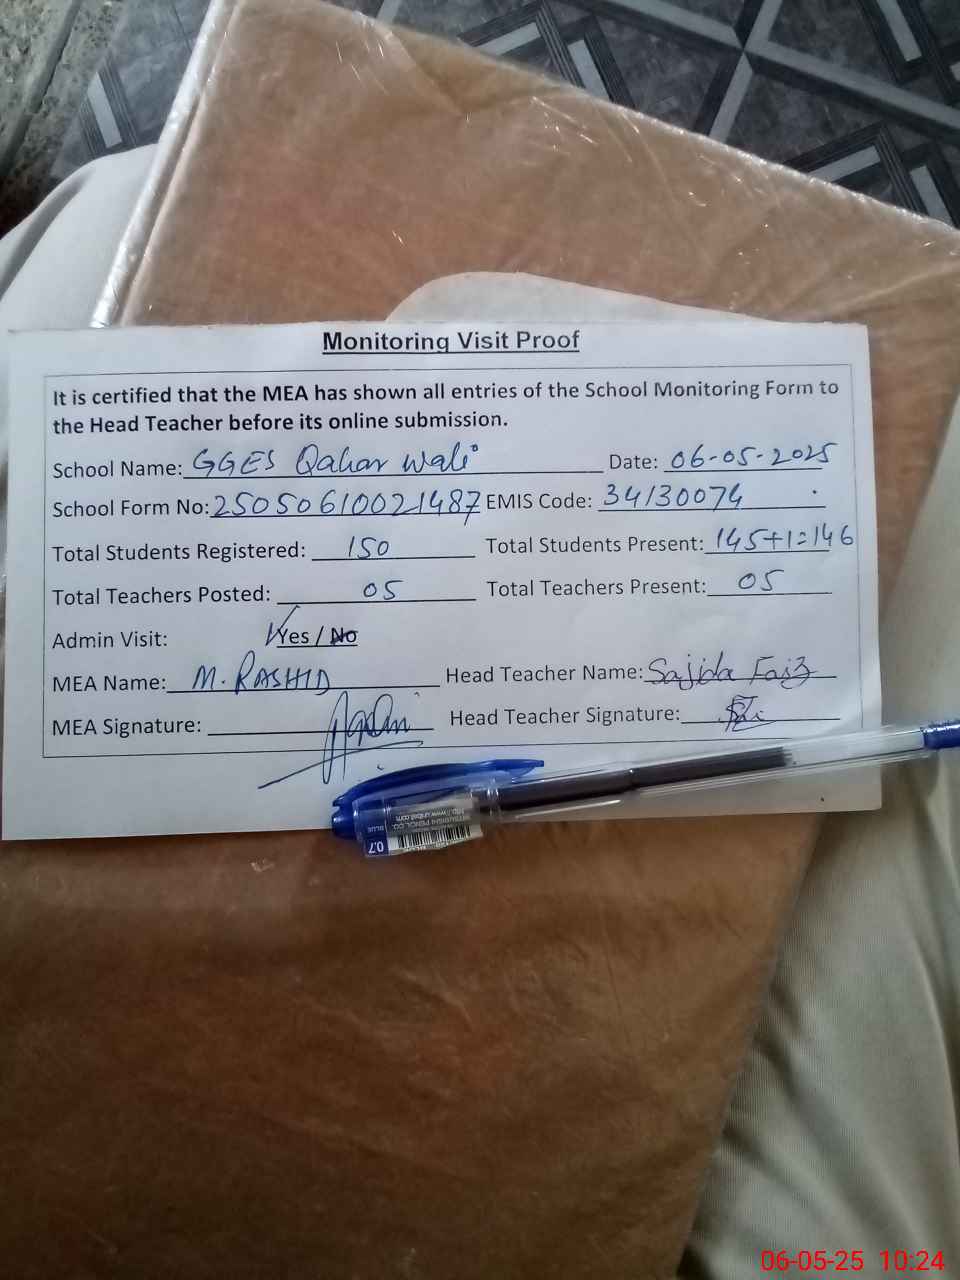 Monitoring Visit Proof
It is certified that the MEA has shown all entries of the School Monitoring Form to
the Head Teacher before its online submission.
School Name: GGES Qahar Wali Date: 06-05-2025
School Form No: 25050610021487 EMIS Code: 34130074
Total Students Registered: 150 Total Students Present: 145+1=146
Total Teachers Posted: 05 Total Teachers Present: 05
Admin Visit: Yes / No
MEA Name: M. RASHID Head Teacher Name: Sajida Faiz
MEA Signature: Head Teacher Signature:
MITSUBISHI PENCIL CO.
BLUE
0.7
06-05-25 10:24